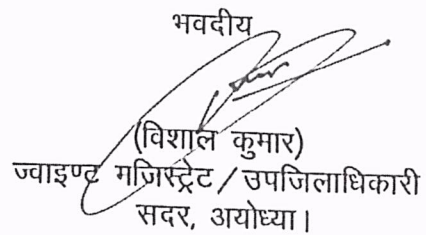 भवदीय
(विशाल कुमार)
ज्वाइण्ट मजिस्ट्रेट / उपजिलाधिकारी
सदर, अयोध्या।